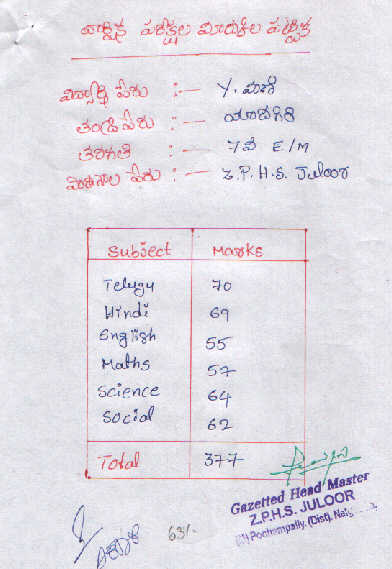 వార్షిక పరీక్షల మార్కుల పట్టిక
విద్యార్థి పేరు :- Y. మణి
తండ్రి పేరు :- యాదగిరి
తరగతి :- 7వ E/M
పాఠశాల పేరు :- Z.P.H.S. Juloor
Subject Marks
Telugu 70
Hindi 69
English 55
Maths 57
Science 64
Social 62
Total 377
Gazetted Head Master
Z.P.H.S. JULOOR
Pochampally, (Dist).
63/-